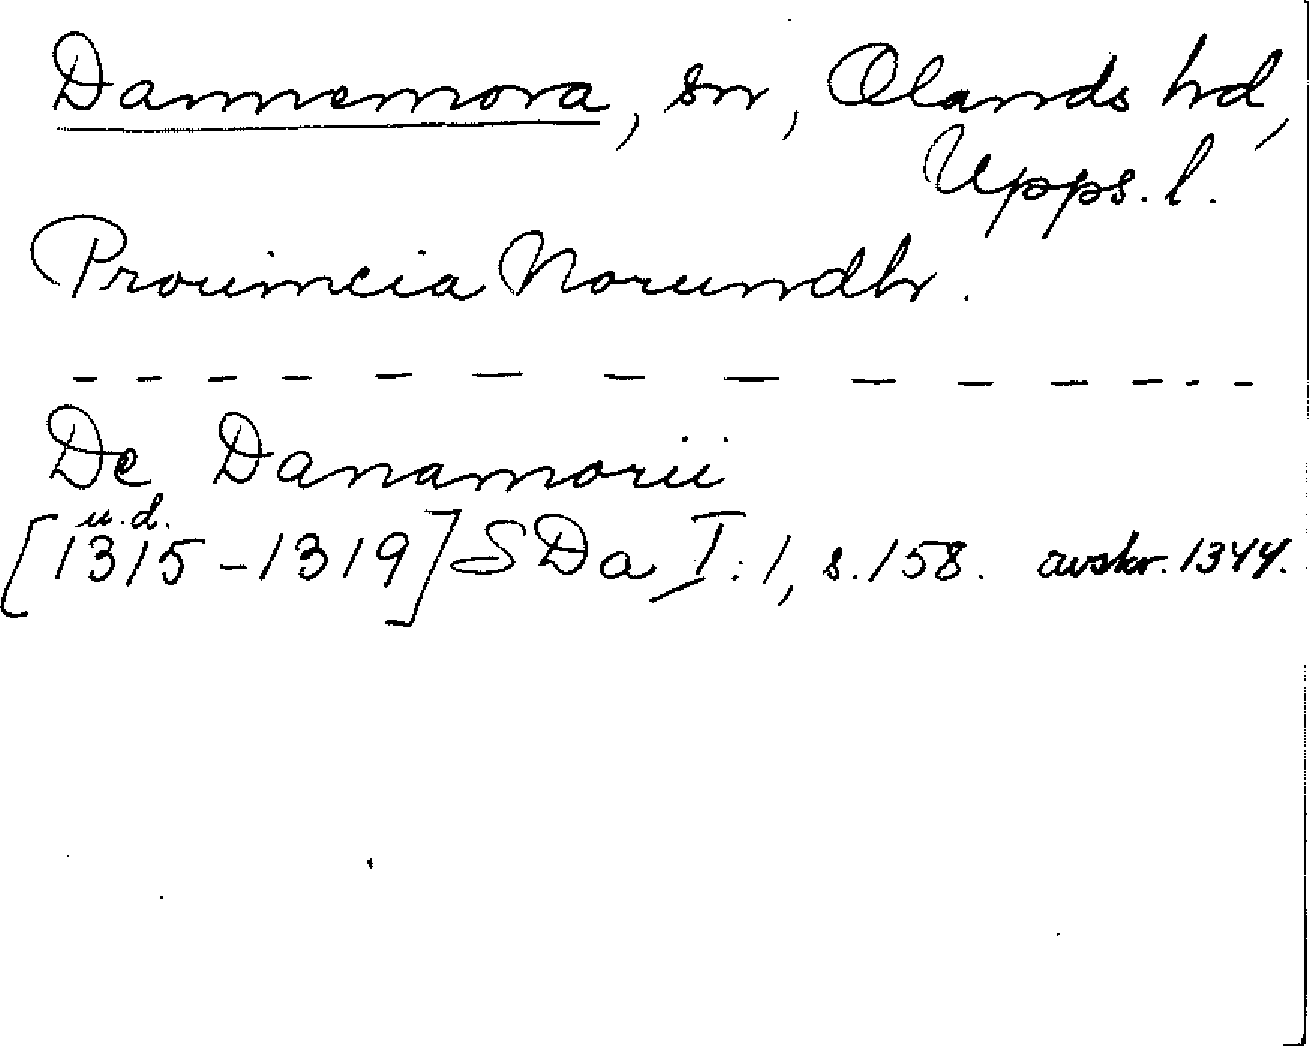 Dannemora, sn, Olands hd,
Upps. l.
Prouincia Norundh.
- - - - - - - - - - - - - -
De Danamorii
u.d.
[1315-1319] SDa I:1, s.158. avskr. 1344.